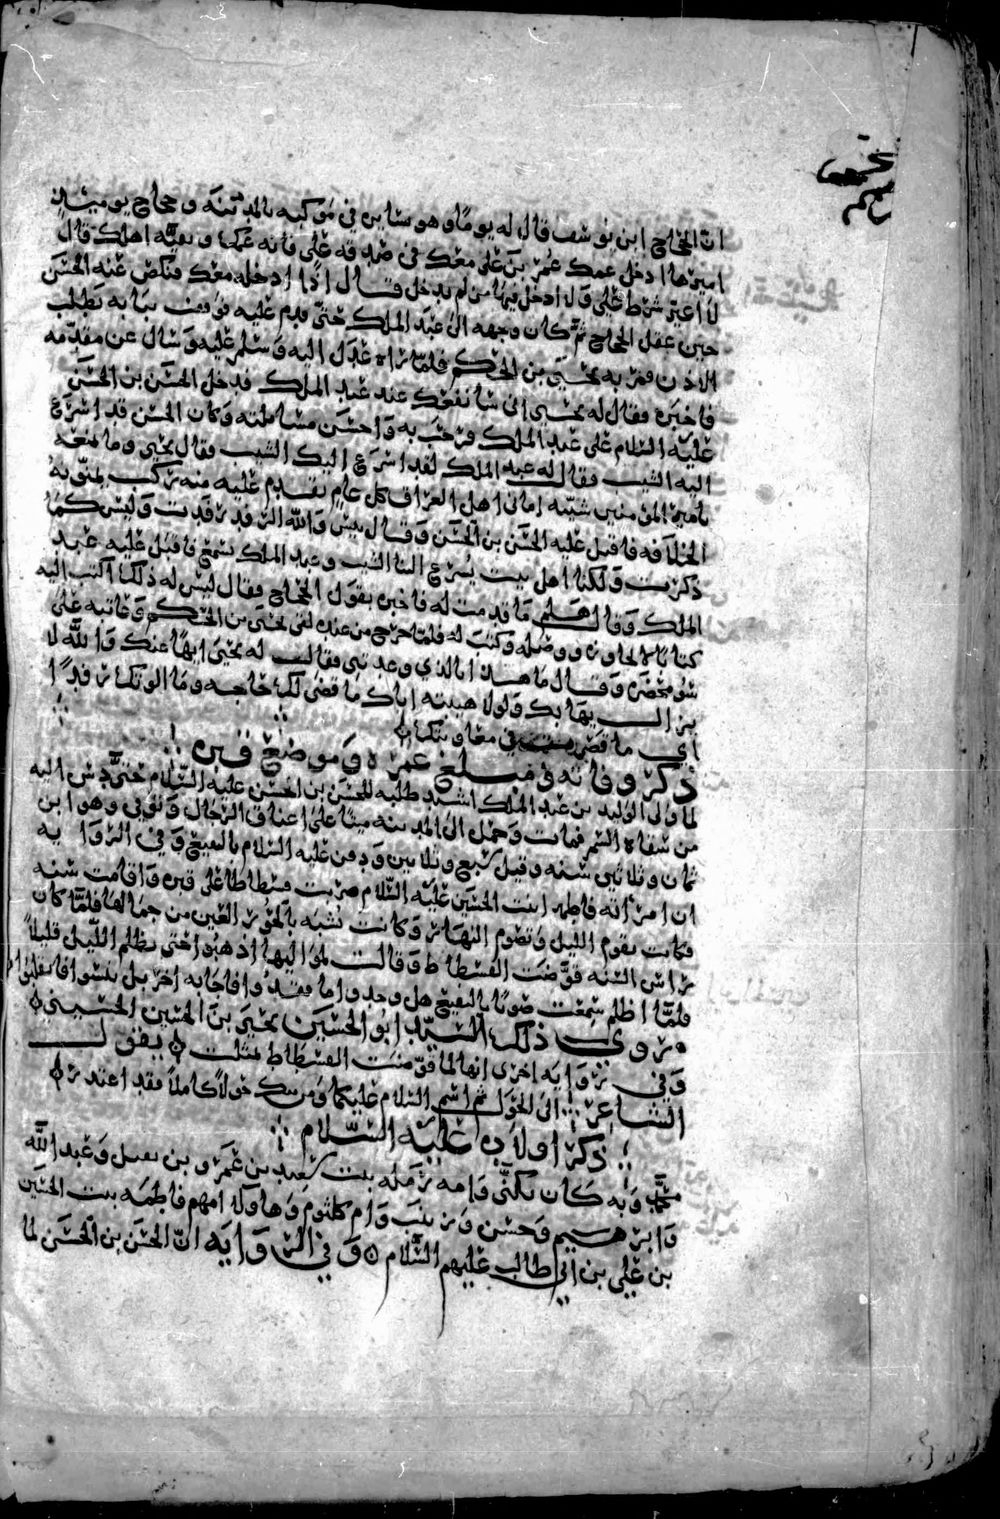 ان الحجاج ابن يوسف قال له يوما وهو يسايره في موكبه بالمدينة وحجاج يوميذ
اميرها ادخل عمك عمر بن علي معك في صدقه علي فانه عمك وبقيه اهلك قال
لا اغير شرط علي ولا ادخل فيها من لم يدخل قال اذا ادخله معك فنكص عنه الحسن
حين غفل الحجاج ثم كان وجهه الى عبد الملك حتى قدم عليه فوقف ببابه يطلب
الاذن فمر به يحيى بن الحكم فلما راه عدل اليه وسلم عليه وسال عن مقدمه
فاخبره فقال له يحيى اني سانفعك عند عبد الملك فدخل الحسن بن الحسن
عليه السلام على عبد الملك فرحب به واحسن مسايلته وكان الحسن قد اسرع
اليه الشيب فقال له عبد الملك لقد اسرع اليك الشيب فقال يحيى وما يمنعه
يامير المومنين شيبه اماني اهل العراق كل عام يقدم عليه منه ركب يمنونه
الخلافه فاقبل عليه الحسن بن الحسن وقال بيس والله الرفد رفدت وليس كما
ذكرت ولكنا اهل بيت يسرع الينا الشيب وعبد الملك يسمع فاقبل عليه عبد
الملك وقال هلم ما قدمت له فاخبره بقول الحجاج فقال ليس له ذلك اكتب اليه
كتابا لا يجاوزه ووصله وكتب له فلما خرج من عنده لقي يحيى بن الحكم وعاتبه على
سو محضره وقال ما هذا بالذي وعدتني فقال له يحيى ايها عنك والله لا
يزال يهابك ولولا هيبته اياك ما قضى لك حاجه وما الوتك رفدا
اي ما قصر في معاونتك
ذكر وفاته في مبلغ عمره وموضع قبره
لما ولي الوليد بن عبد الملك اشتد طلبه للحسن بن الحسن عليه السلام حتى دس اليه
من سقاه السم فمات وحمل الى المدينه ميتا على اعناق الرجال وتوفي وهو ابن
ثمان وثلاثين سنه وقيل سبع وثلاثين ودفن عليه السلام بالبقيع وفي الروايه
ان امراته فاطمه ابنت الحسين عليه السلام ضربت فسطاطا على قبره واقامت سنه
فكانت تقوم الليل وتصوم النهار وكانت تشبه بالحور العين من جمالها فلما كان
راس السنه قوضت الفسطاط وقالت لمواليها اذهبوا حتى يظلم الليل قليلا
فلما اظلم سمعت صوتا بالبقيع هل وجدوا ما فقدوا فاجابه اخر بل يئسوا فانقلبوا
وروى ذلك السيد ابو الحسين يحيى بن الحسين الحسيني
وفي روايه اخرى انها لما قوضت الفسطاط مثلت بقول
الشاعر الى الحول ثم اسم السلام عليكما ومن يبك حولا كاملا فقد اعتذر
ذكر اولاده عليه السلام
محمد وبه كان يكنى وامه رمله بنت سعيد بن عمرو بن نفيل وعبد الله
وابرهيم وحسن وزينب وام كلثوم وهاولا امهم فاطمه بنت الحسين
بن علي بن ابي طالب عليهم السلام وفي الروايه ان الحسن بن الحسن لما